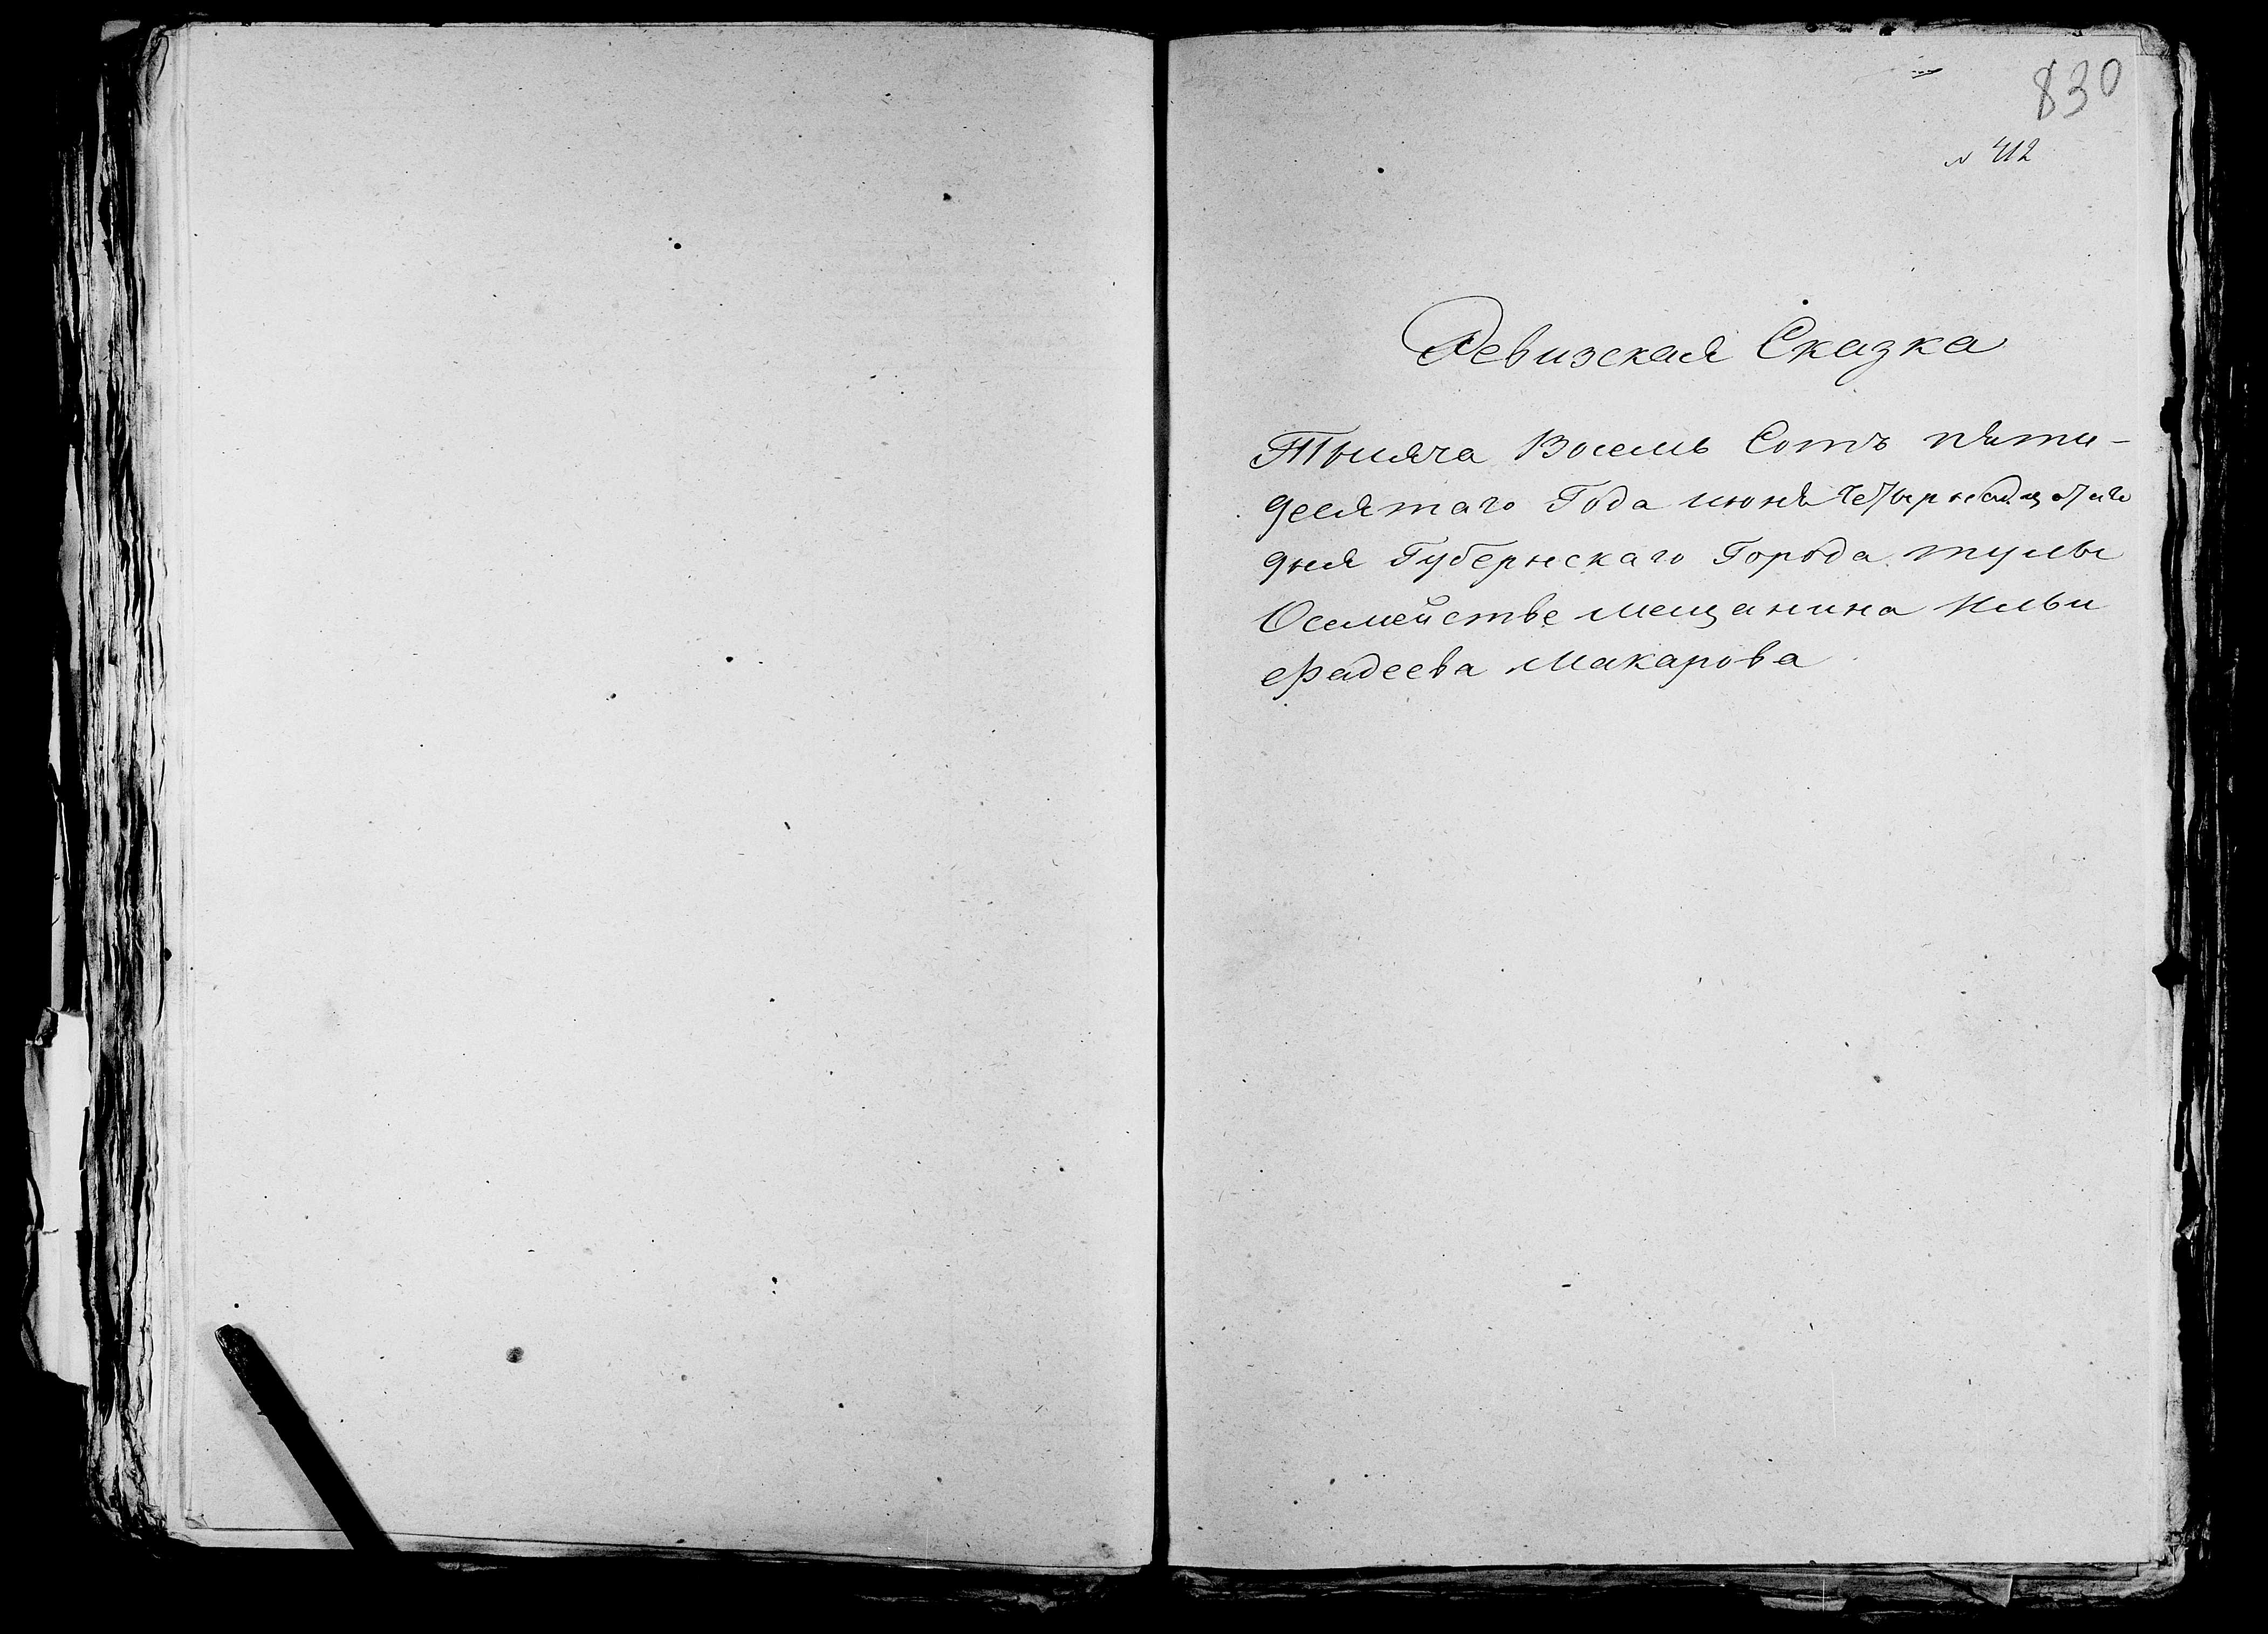 830
№ 412
Ревизская Сказка
Тысяча Восемь Сотъ пяти-
десятаго Года июня Четырнадцатаго
дня Губернскаго Города тулы
Осемействе мещанина Ильи
Фадеева Макарова